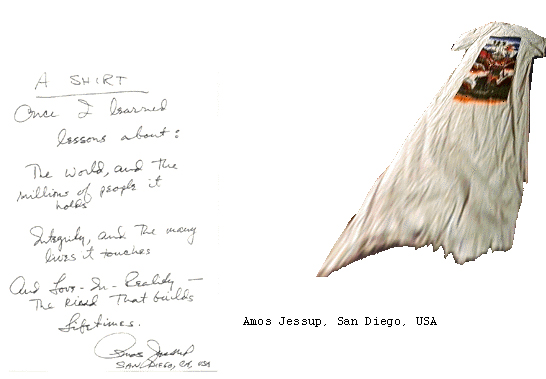 A SHIRT
Once I learned
lessons about:
The world, and the
millions of people it
holds
Integrity, and the many
lives it touches
And Love-In-Reality —
The Kind That builds
lifetimes.
Amos Jessup
SAN DIEGO, CA, USA
Amos Jessup, San Diego, USA